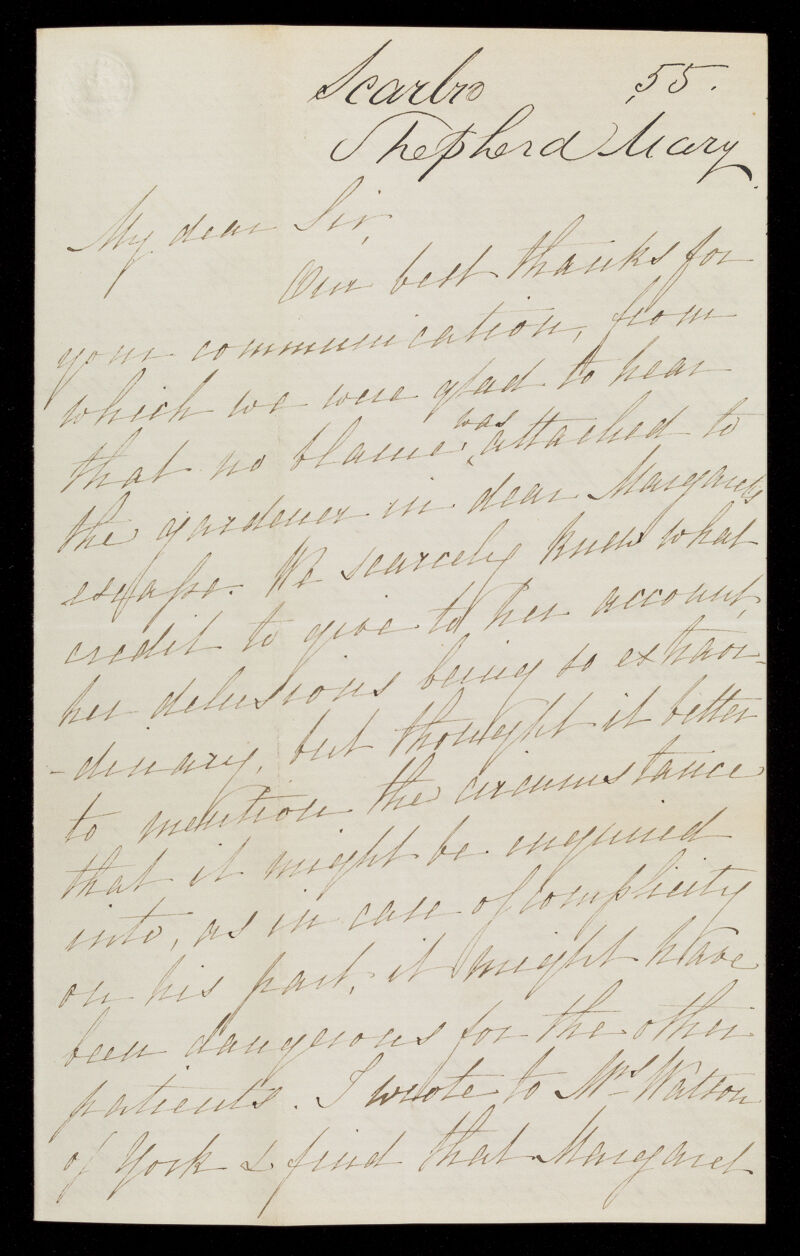 Scarbro 55.
Shepherd Mary.
My dear Sir,
Our best thanks for
your communication, from
which we were glad to hear
that no blame was attached to
the gardener in dear Margarets
escape. We scarcely knew what
credit to give to her account,
her delusions being so extraor-
-dinary, but thought it better
to mention the circumstance
that it might be enquired
into, as in case of complicity
on his part, it might have
been dangerous for the other
patients. I wrote to Mrs Watson
of York & find that Margaret